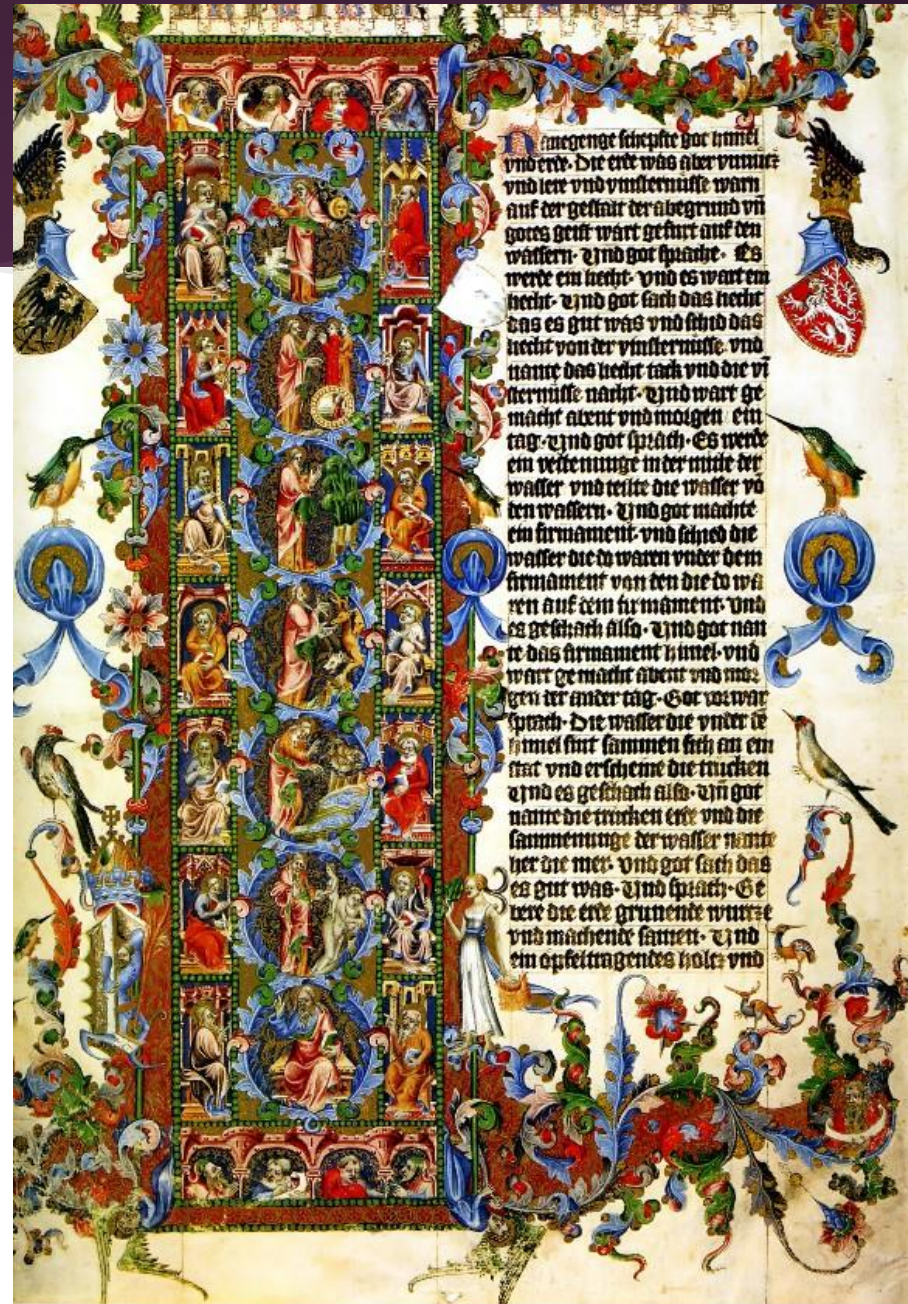 Namegenge schepfte got himel
vnd erde · Die erde was aber vnnucz
vnd lere vnd vinsternüsse warn
auf der gestalt der abegrund vn̄
gotes geist wart gefurt auf den
wassern · Vnd got sprache · Es
werde ein liecht · vnd es wart ein
liecht · Vnd got sach das liecht
das es gut was vnd schid das
liecht von der vinsternusse vnd
nante das liecht tack vnd die vi
sternusse nacht · Vnd wart ge
macht abent vnd morgen ein
tag · Vnd got sprach · Es werde
ein vestenunge in der mitte der
wasser vnd teilte die wasser vō
den wassern · Vnd got machte
ein firmament · vnd schied die
wasser die do waren vnder dem
firmament von den die do wa
ren auf dem firmament · vnd
es geschach also · Vnd got nan
te das firmament himel · vnd
wart gemacht abent vnd mor
gen der ander tag · Got
sprach · Die wasser die vnder dē
himel sint sammen sich an ein
stat vnd erscheine die trucken
Vnd es geschach also · Vn̄ got
nante die trucken erde vnd die
sammenunge der wasser nante
her die mer · vnd got sach das
es gut was · Vnd sprach · Ge
bere die erde grunende wurcze
vnd machende samen · Vnd
ein opfeltragendes holcz vnd